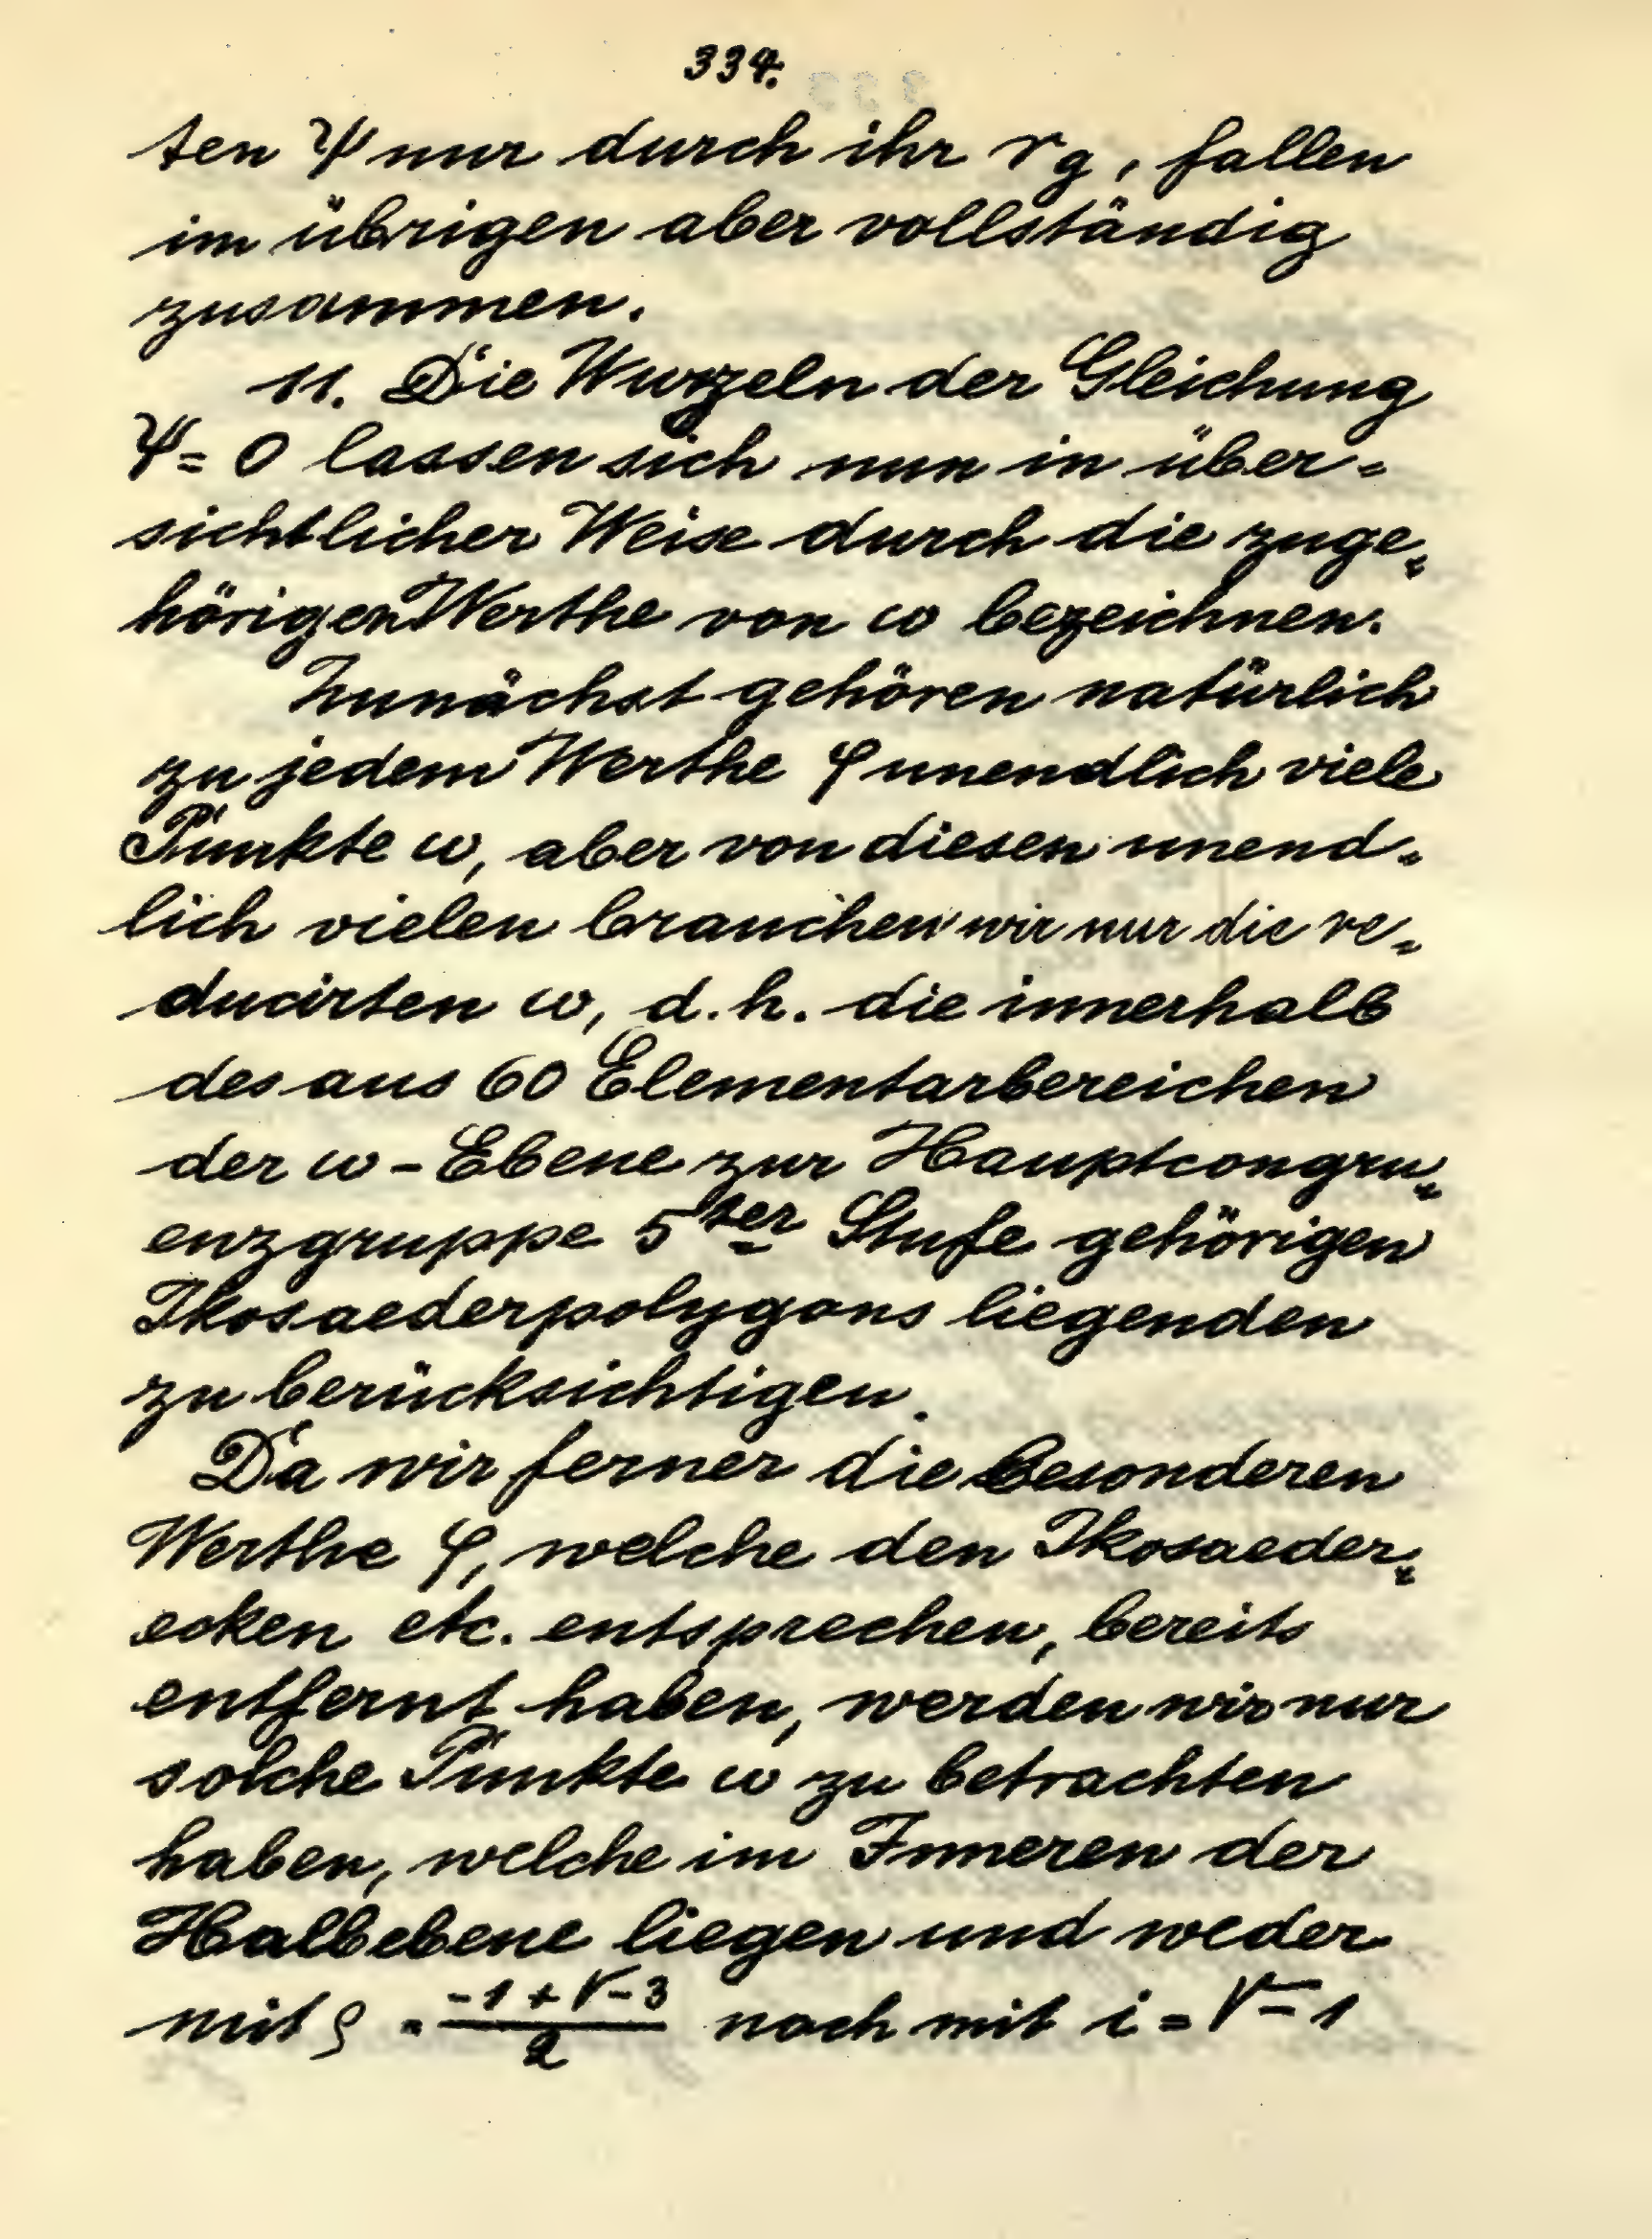 334.
ten Ψ nur durch ihr r_g, fallen
im übrigen aber vollständig
zusammen.
11. Die Wurzeln der Gleichung
Ψ = 0 lassen sich nun in über=
sichtlicher Weise durch die zuge=
hörigen Werthe von ω bezeichnen.
Zunächst gehören natürlich
zu jedem Werthe φ unendlich viele
Punkte ω, aber von diesen unend=
lich vielen brauchen wir nur die re=
ducirten ω, d.h. die innerhalb
des aus 60 Elementarbereichen
der ω-Ebene zur Hauptcongru=
enzgruppe 5ter Stufe gehörigen
Ikosaederpolygons liegenden
zu berücksichtigen.
Da wir ferner die besonderen
Werthe φ, welche den Ikosaeder=
ecken etc. entsprechen, bereits
entfernt haben, werden wir nur
solche Punkte ω zu betrachten
haben, welche im Inneren der
Halbebene liegen und weder
mit ρ = (-1 + √-3)/2 noch mit i = √-1